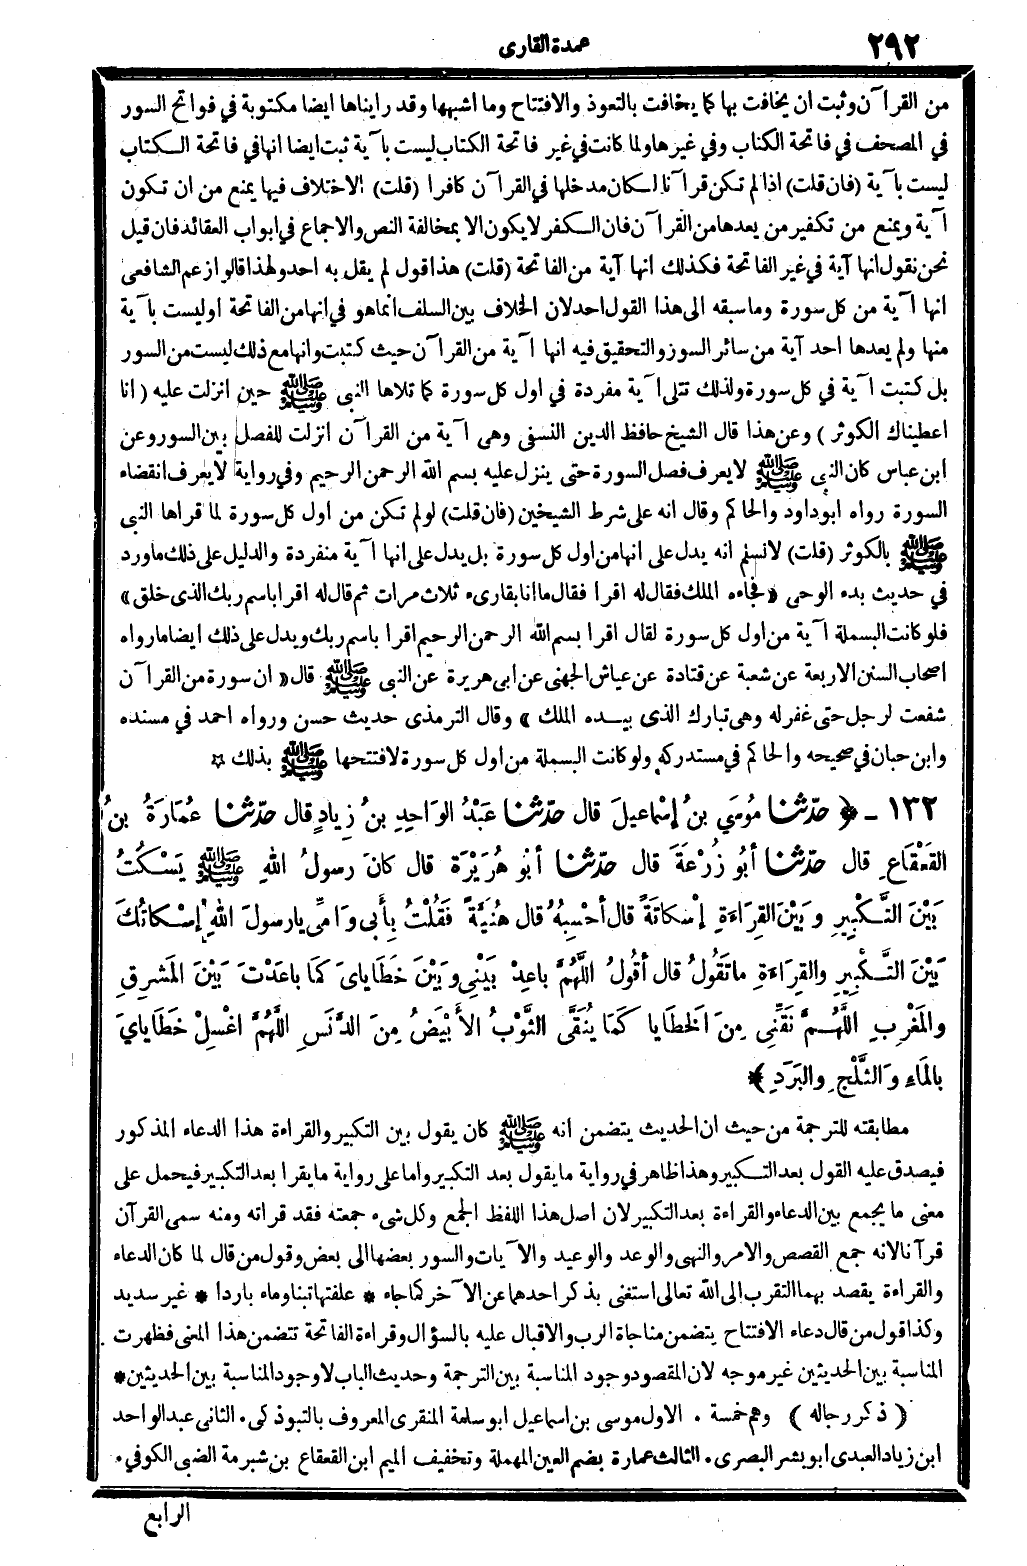 ٢٩٢
عمدة القارى
من القرآن وثبت ان يخافت بها كما يخافت بالتعوذ والافتتاح وما اشبهها وقد رايناها ايضا مكتوبة في فواتح السور
في المصحف في فاتحة الكتاب وفي غيرها ولما كانت في غير فاتحة الكتاب ليست بآية ثبت ايضا انها في فاتحة الكتاب
ليست بآية (فان قلت) اذا لم تكن قرآنا لكان مدخلها في القرآن كافرا (قلت) الاختلاف فيها يمنع من ان تكون
آية ويمنع من تكفير من يعدها من القرآن فان الكفر لا يكون الا بمخالفة النص والاجماع في ابواب العقائد فان قيل
نحن نقول انها آية في غير الفاتحة فكذلك انها آية من الفاتحة (قلت) هذا قول لم يقل به احد ولهذا قالوا زعم الشافعى
انها آية من كل سورة وما سبقه الى هذا القول احد لان الخلاف بين السلف انما هو في انها من الفاتحة او ليست بآية
منها ولم يعدها احد آية من سائر السور والتحقيق فيه انها آية من القرآن حيث كتبت وانها مع ذلك ليست من السور
بل كتبت آية في كل سورة ولذلك تتلى آية مفردة في اول كل سورة كما تلاها النبى ﷺ حين انزلت عليه (انا
اعطيناك الكوثر) وعن هذا قال الشيخ حافظ الدين النسفى وهى آية من القرآن انزلت للفصل بين السور وعن
ابن عباس كان النبى ﷺ لا يعرف فصل السورة حتى ينزل عليه بسم الله الرحمن الرحيم وفي رواية لا يعرف انقضاء
السورة رواه ابو داود والحاكم وقال انه على شرط الشيخين (فان قلت) لو لم تكن من اول كل سورة لما قراها النبى
ﷺ بالكوثر (قلت) لانسلم انه يدل على انها من اول كل سورة بل يدل على انها آية منفردة والدليل على ذلك ما ورد
في حديث بدء الوحى «فجاءه الملك فقال له اقرا فقال ما انا بقارىء ثلاث مرات ثم قال له اقرا باسم ربك الذى خلق»
فلو كانت البسملة آية من اول كل سورة لقال اقرا بسم الله الرحمن الرحيم اقرا باسم ربك ويدل على ذلك ايضا ما رواه
اصحاب السنن الاربعة عن شعبة عن قتادة عن عياش الجهنى عن ابى هريرة عن النبى ﷺ قال «ان سورة من القرآن
شفعت لرجل حتى غفر له وهى تبارك الذى بيده الملك» وقال الترمذى حديث حسن ورواه احمد في مسنده
وابن حبان في صحيحه والحاكم في مستدركه ولو كانت البسملة من اول كل سورة لافتتحها ﷺ بذلك ☆
١٣٢ ـ ﴿ حدّثنا مُوسَى بنُ إسْماعيلَ قال حدّثنا عَبْدُ الوَاحِدِ بنُ زِيادٍ قال حدّثنا عُمَارَةُ بنُ
القَعْقَاعِ قال حدّثنا أبُو زُرْعَةَ قال حدّثنا أبُو هُرَيْرَةَ قال كانَ رسولُ اللهِ ﷺ يَسْكُتُ
بَيْنَ التَّكْبِيرِ وبَيْنَ القِرَاءَةِ إسْكاتَةً قال أحْسِبُهُ قال هُنَيَّةً فَقُلْتُ بِأَبى وَامِّى يا رسولَ اللهِ إسْكاتُكَ
بَيْنَ التَّكْبِيرِ والقِرَاءَةِ ما تَقُولُ قال أقُولُ اللَّهُمَّ باعِدْ بَيْنِى وبَيْنَ خَطَايَاىَ كَمَا باعَدْتَ بَيْنَ المَشْرِقِ
والمَغْرِبِ اللَّهُمَّ نَقِّنِى مِنَ الخَطايا كَمَا يُنَقَّى الثَّوْبُ الأبْيَضُ مِنَ الدَّنَسِ اللَّهُمَّ اغْسِلْ خَطَايايَ
بالمَاءِ وَالثَّلْجِ والبَرَدِ ﴾
مطابقته للترجمة من حيث ان الحديث يتضمن انه ﷺ كان يقول بين التكبير والقراءة هذا الدعاء المذكور
فيصدق عليه القول بعد التكبير وهذا ظاهر في رواية ما يقول بعد التكبير واما على رواية ما يقرا بعد التكبير فيحمل على
معنى ما يجمع بين الدعاء والقراءة بعد التكبير لان اصل هذا اللفظ الجمع وكل شىء جمعته فقد قراته ومنه سمى القرآن
قرآنا لانه جمع القصص والامر والنهى والوعد والوعيد والآيات والسور بعضها الى بعض وقول من قال لما كان الدعاء
والقراءة يقصد بهما التقرب الى الله تعالى استغنى بذكر احدهما عن الآخر كما جاء * علفتها تبنا وماء باردا * غير سديد
وكذا قول من قال دعاء الافتتاح يتضمن مناجاة الرب والاقبال عليه بالسؤال وقراءة الفاتحة تتضمن هذا المعنى فظهرت
المناسبة بين الحديثين غير موجه لان المقصود وجود المناسبة بين الترجمة وحديث الباب لا وجود المناسبة بين الحديثين *
( ذكر رجاله ) وهم خمسة . الاول موسى بن اسماعيل ابو سلمة المنقرى المعروف بالتبوذكى . الثانى عبد الواحد
ابن زياد العبدى ابو بشر البصرى . الثالث عمارة بضم العين المهملة وتخفيف الميم ابن القعقاع بن شبرمة الضبى الكوفي .
الرابع